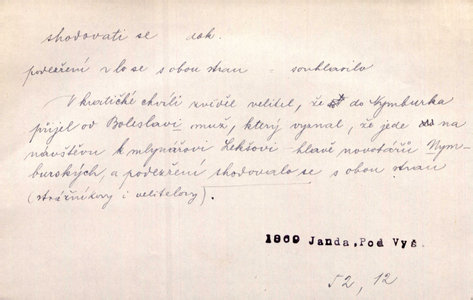 shodovati se dok.
podezření zlo se s obou stran - souhlasilo
V kratičké chvíli zvěděl velitel, že do Nymburka
přijel od Boleslavi muž, který vyznal, že jede na
návštěvu k mlynářovi Lekšovi hlavě novotářů Nym-
burských, a podezření shodovalo se s obou stran
(strážníkovy i velitelovy).
1869 Janda, Pod Vyš.
52, 12